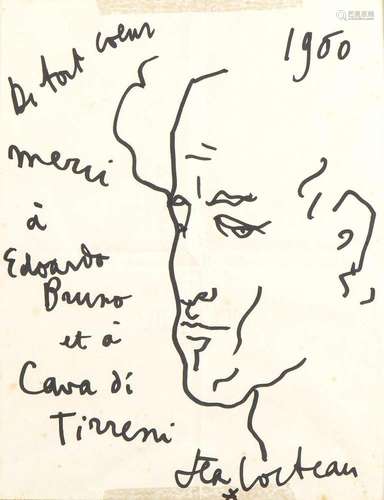 De tout coeur
1960
merci
à
Edoardo
Bruno
et à
Cava di
Tirreni
Jean Cocteau